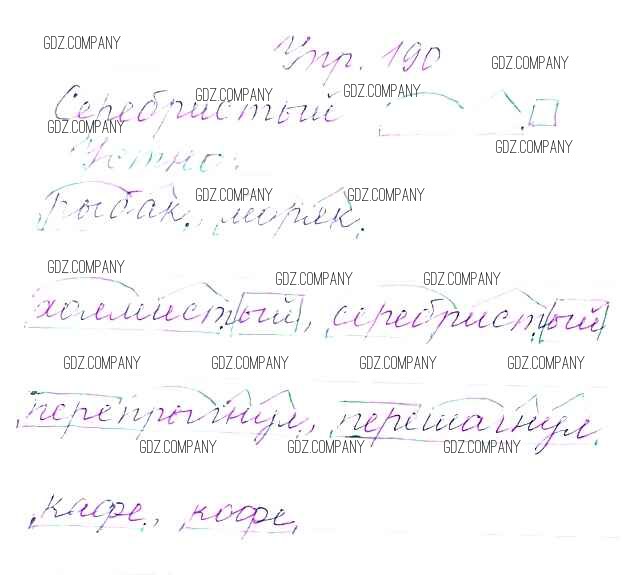 GDZ.COMPANY
Упр. 190
GDZ.COMPANY
GDZ.COMPANY GDZ.COMPANY
Серебристый
GDZ.COMPANY
GDZ.COMPANY
Устно:
GDZ.COMPANY GDZ.COMPANY
рыбак, моряк.
GDZ.COMPANY GDZ.COMPANY GDZ.COMPANY
холмистый, серебристый
GDZ.COMPANY GDZ.COMPANY GDZ.COMPANY GDZ.COMPANY
перепрыгнул, перешагнул
GDZ.COMPANY GDZ.COMPANY GDZ.COMPANY
кафе, кофе